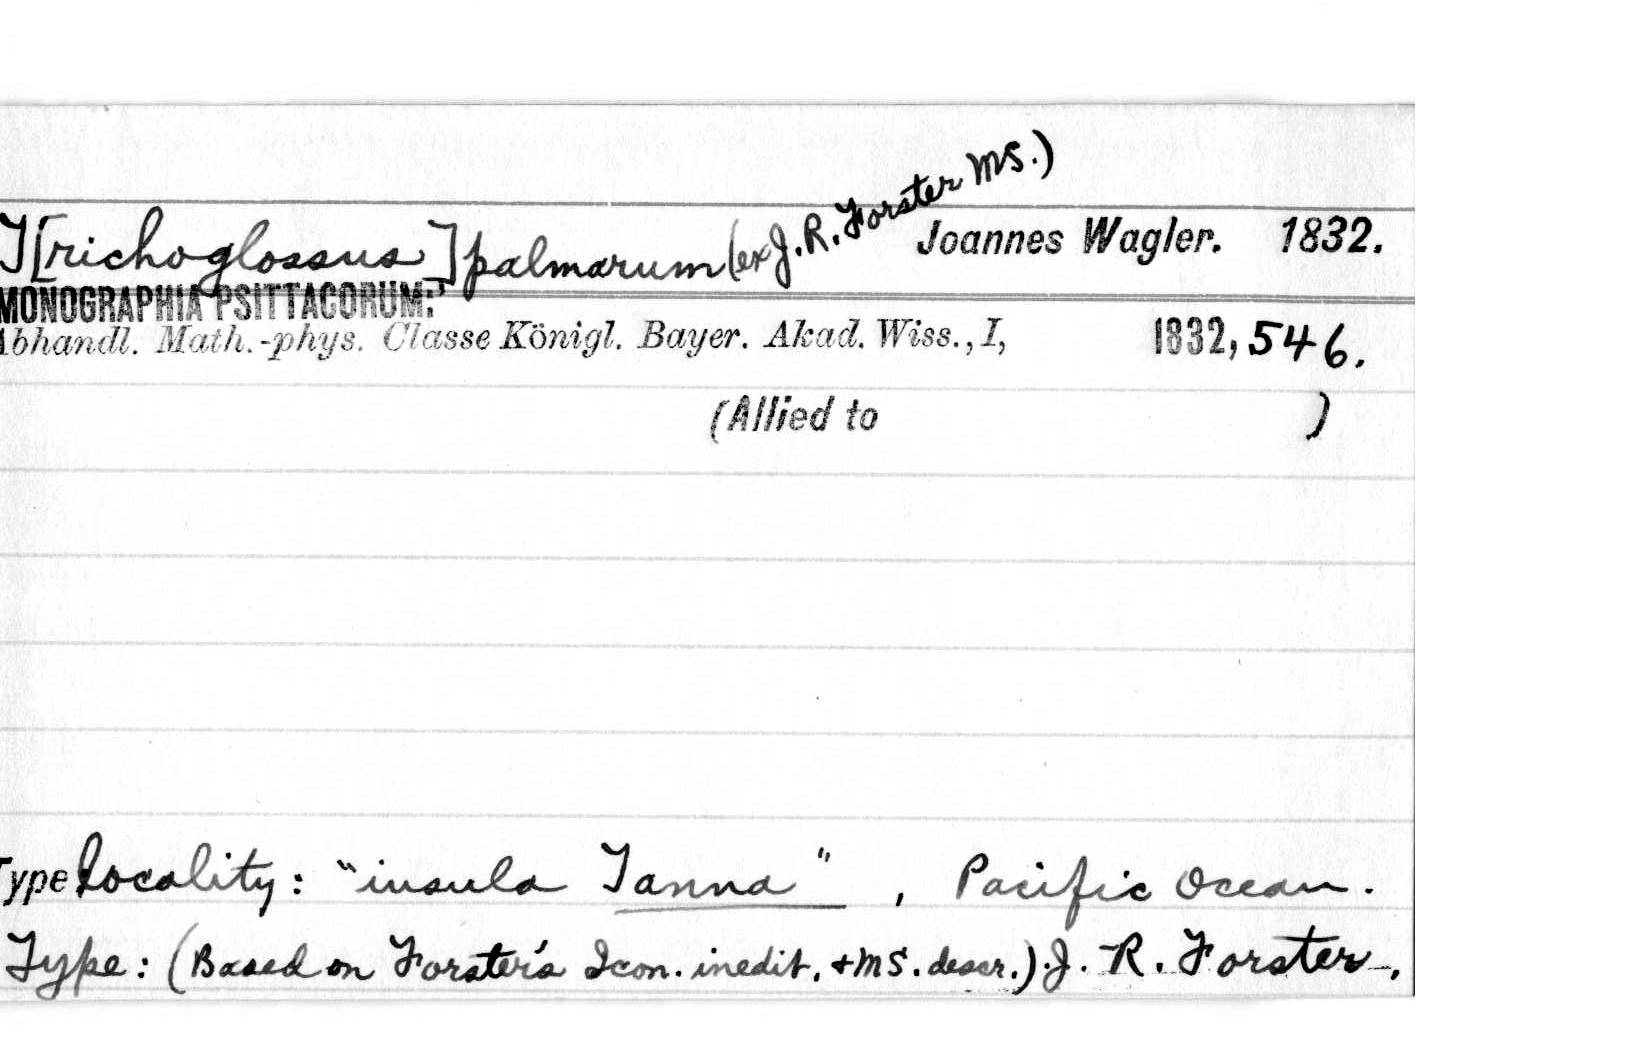 T[richoglossus] palmarum (ex J. R. Forster MS.) Joannes Wagler. 1832.
MONOGRAPHIA PSITTACORUM:
Abhandl. Math.-phys. Classe Königl. Bayer. Akad. Wiss., I, 1832, 546.
(Allied to )
Type locality: "insula Tanna", Pacific Ocean.
Type: (Based on Forster's Icon. inedit. + MS. descr.) J. R. Forster.